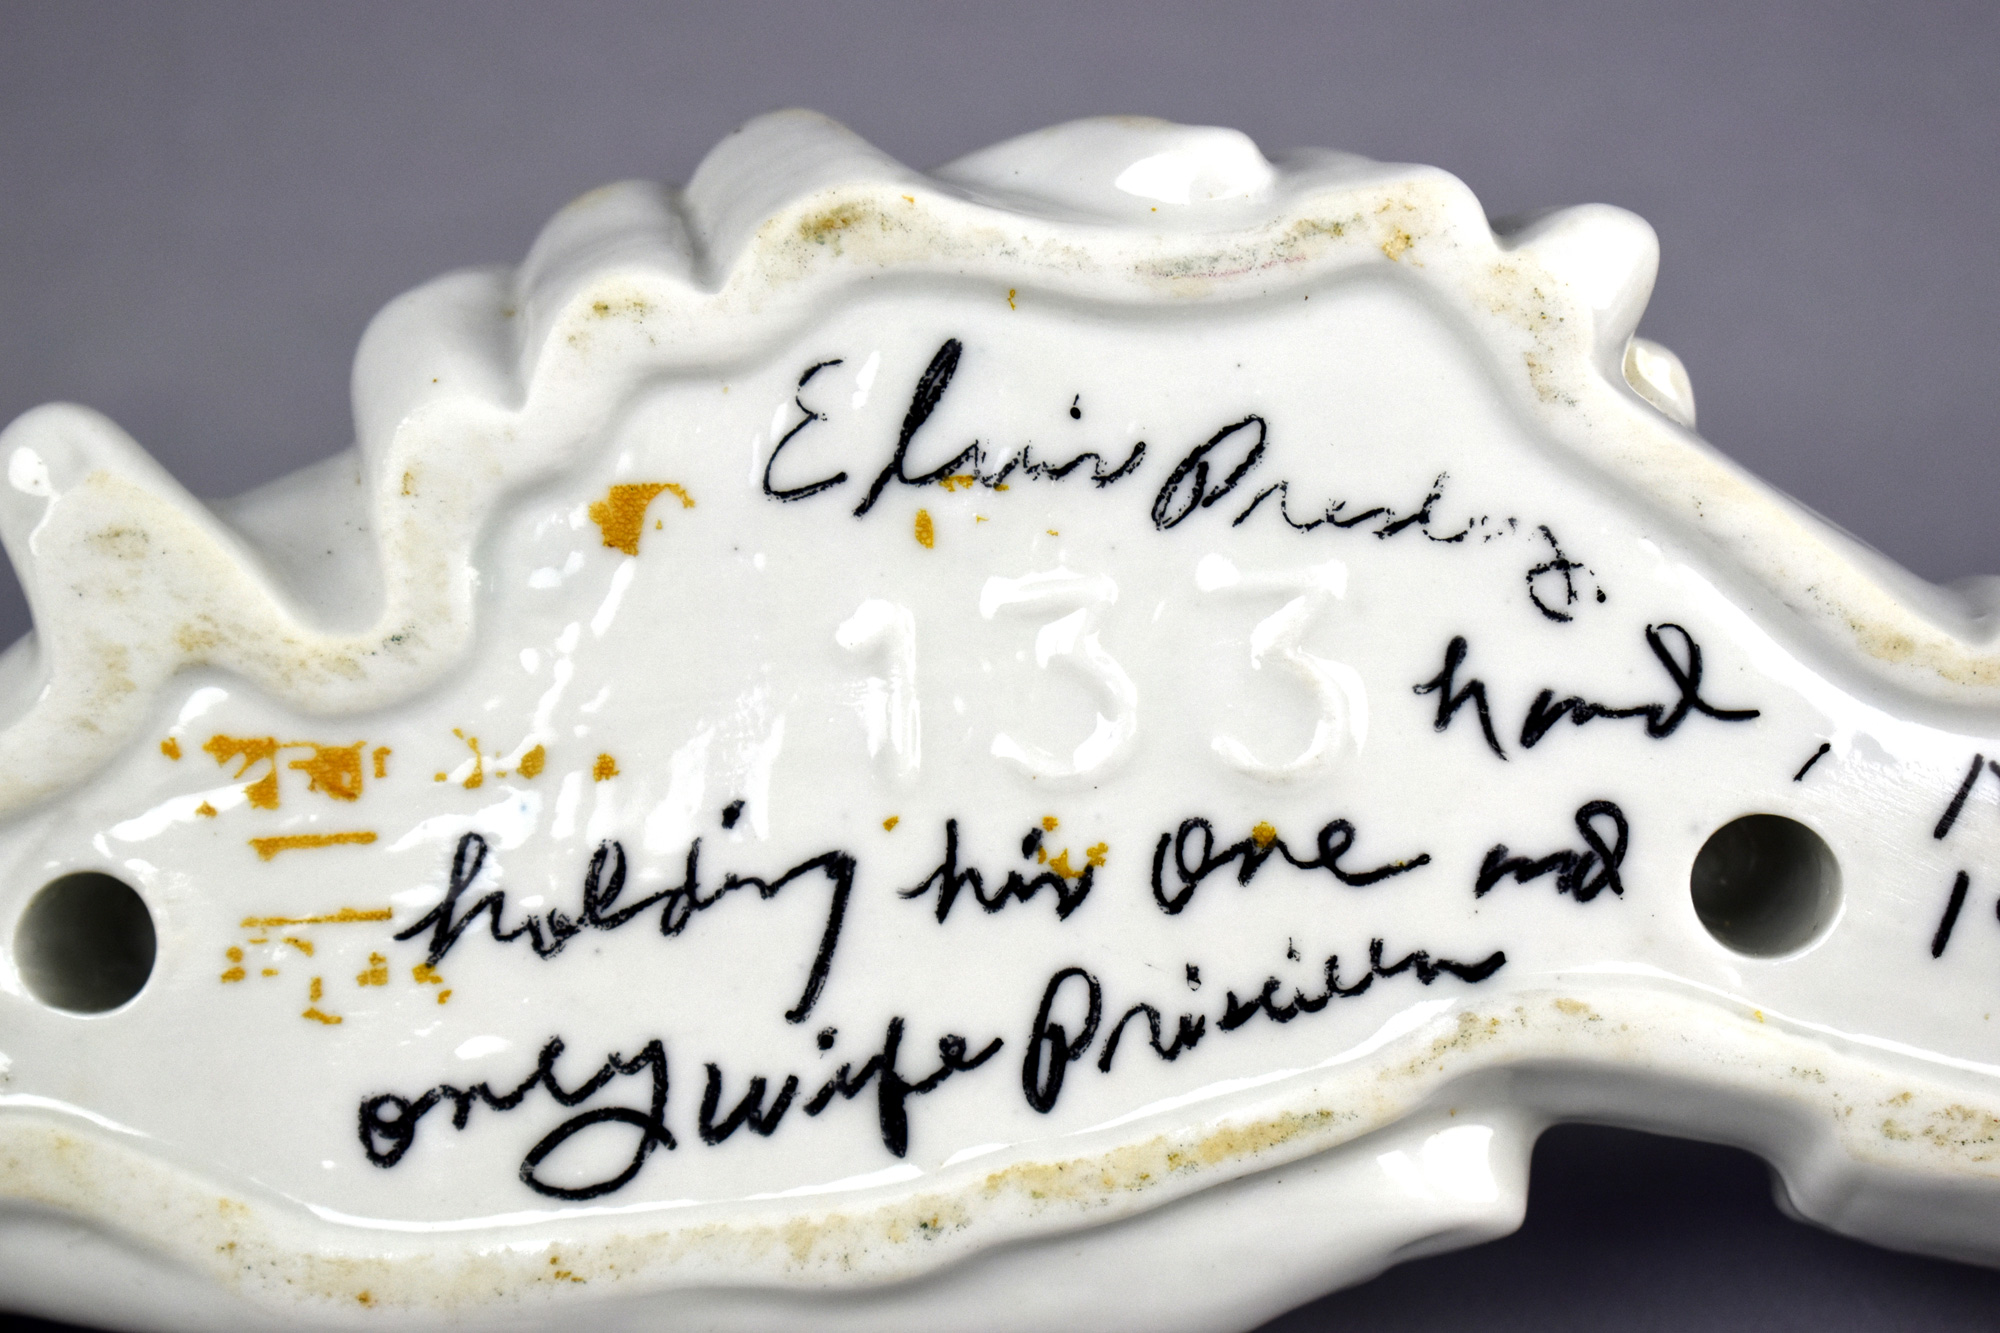 Elvis Presley.
133
hand,
holding his one and
only wife Priscilla